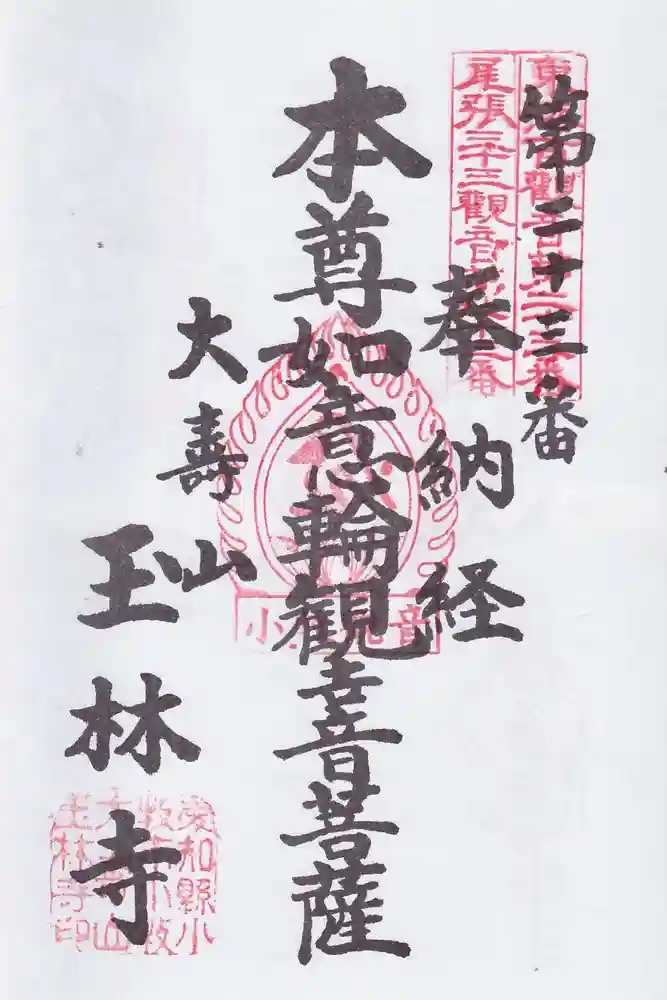 東海百觀音第二十三番
尾張三十三觀音第二十三番
第二十三番
奉納経
本尊如意輪観世音菩薩
大壽山
玉林寺
愛知縣小
牧市小牧
大壽山
玉林寺印